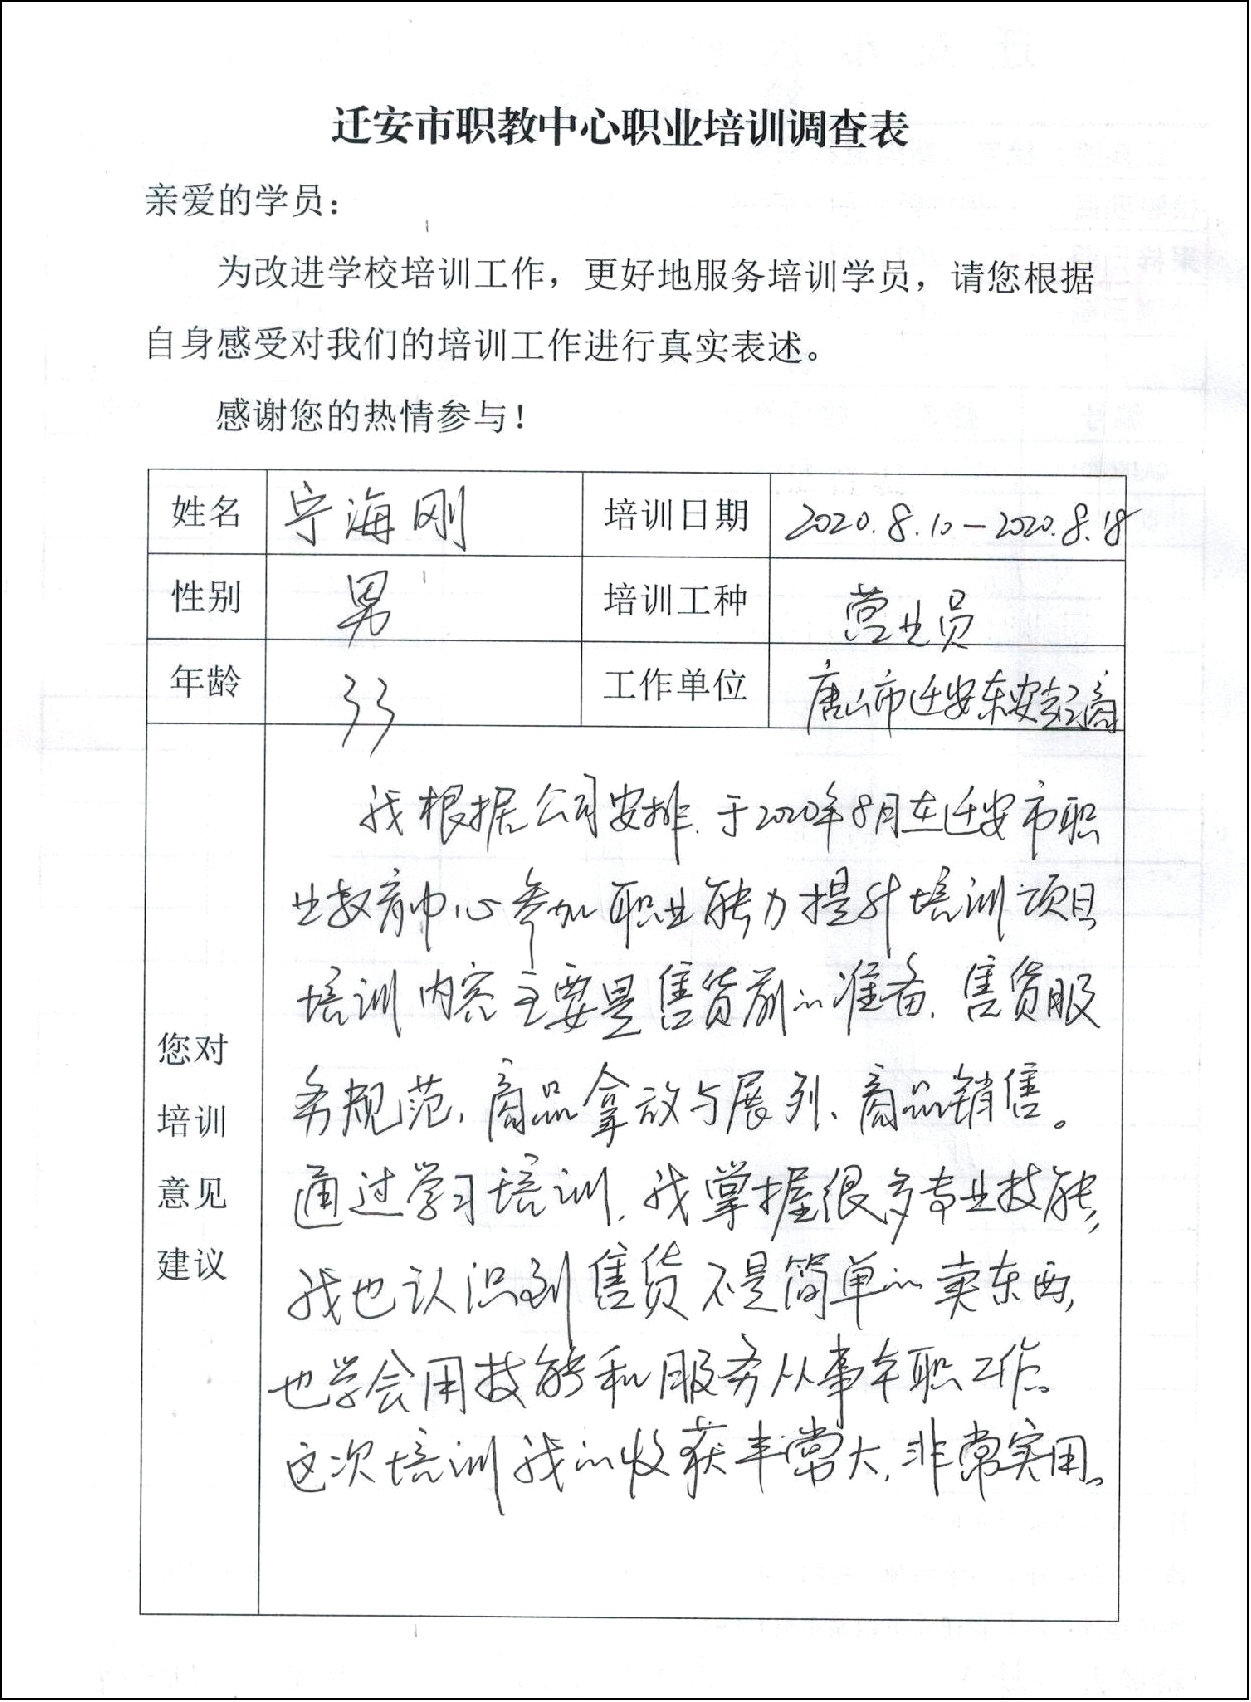 迁安市职教中心职业培训调查表
亲爱的学员：
为改进学校培训工作，更好地服务培训学员，请您根据
自身感受对我们的培训工作进行真实表述。
感谢您的热情参与！
姓名 宁海刚 培训日期 2020.8.10-2020.8.18
性别 男 培训工种 营业员
年龄 33 工作单位 唐山市迁安东安 商
您对
培训
意见
建议
我根据公司安排，于2020年8月在迁安市职
业教育中心参加职业能力提升培训项目
培训内容主要是售货前的准备、售货服
务规范、商品拿放与展列、商品销售。
通过学习培训，我掌握很多专业技能，
我也认识到售货不是简单的卖东西，
也学会用技能和服务从事本职工作。
这次培训我的收获丰常大，非常实用。